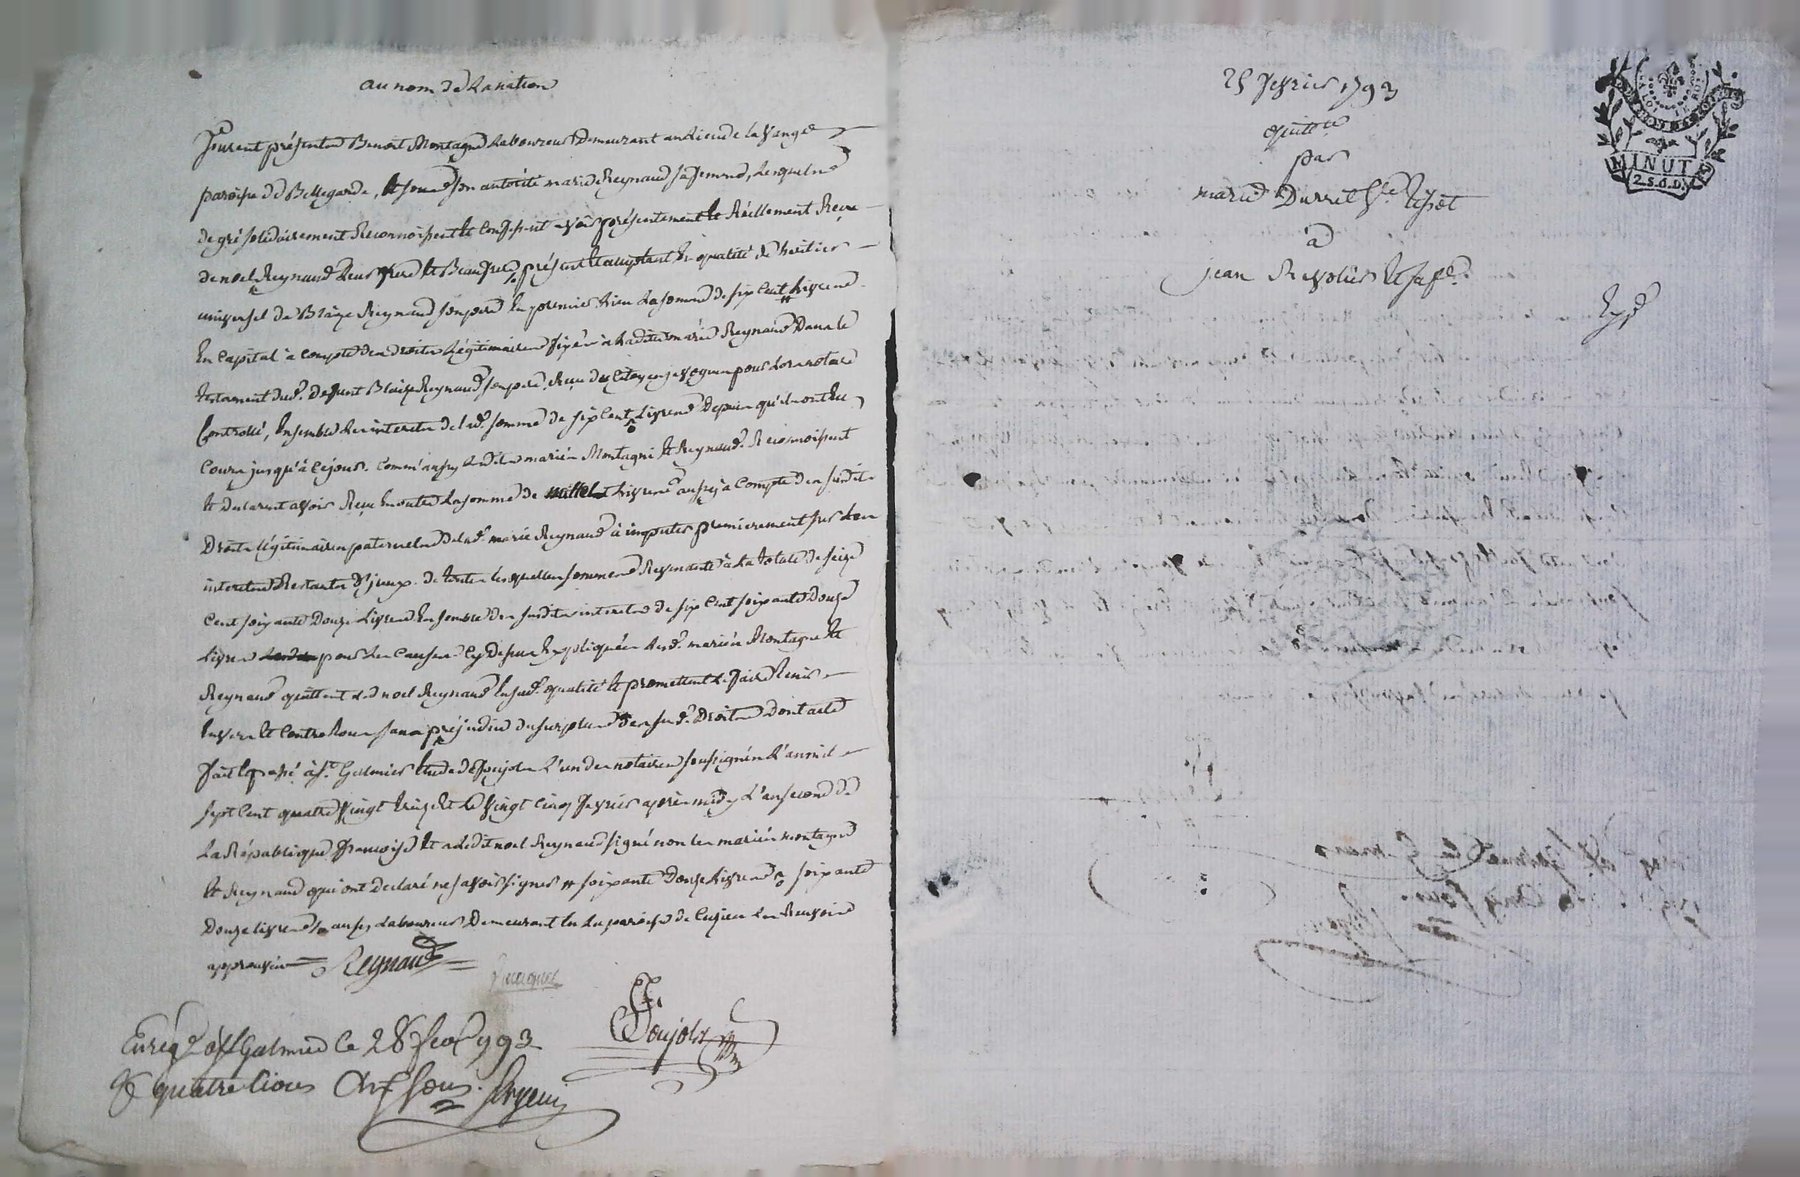 au nom de la nation
furent présents Benoit Montagne laboureur Demeurant au lieu de la vange
paroisse de Bellegarde, et sous son autorité marie Reynaud sa femme, lesquels
de gré solidairement Reconnoissent et confessent avoir présentement et Réellement Reçu
de noel Reynaud leur frere et Beaufrere présent et acceptant En qualité de héritier
universel de Blaize Reynaud son pere En premier lieu la somme de six cent livres
En capital à compte des droits légitimaires fixés à ladite marie Reynaud Dans le
testament dud. deffunt Blaize Reynaud son pere, Reçu du Citoyen pour lors notaire
Controllé, Ensemble les interets de lad. somme de six cent livres Depuis qu'ils ont Eu
cours jusqu'à ce jour. comm'aussy lesdits mariés Montagne et Reynaud Reconnoissent
et declarent avoir Reçu En outre la somme de mille livres aussy à compte des susdits
Droits légitimaires paternels de lad. marie Reynaud à imputer premierement sur les
interets Restants d'iceux. de toutes lesquelles sommes Revenantes à la totale de seize
cent soixante douze livres Ensemble des susdits interets de six cent soixante douze
livres pour les causes cy dessus Expliquées lesd. mariés Montagne et
Reynaud quittent led noel Reynaud En sad. qualité et promettent le faire tenir
Envers et contre tous sans préjudice du surplus des sud. Droits Dont acte
fait et passé à St. Galmier Etude de Poujols l'un des notaires soussignés L'an mil
sept cent quatre vingt treize et le vingt cinq fevrier après midy L'an second de
La République francoise et a ledit noel Reynaud signé non les mariés montagne
et Reynaud qui ont declaré ne savoir signer # soixante Douze livres soixante
Douze livres aussy laboureur Demeurant En la paroisse de Cuzieu les Renvois
approuvés Reynaud
Poujols
Enregé. à St Galmier le 28 fevr 1793
R quatre livres cinq sous.
25 fevrier 1793
quittce
par
marie Durril
à
jean Revolier et sa fe.
Expé
LA LOI ET LE ROI
MINUT.
2.S.6.D.